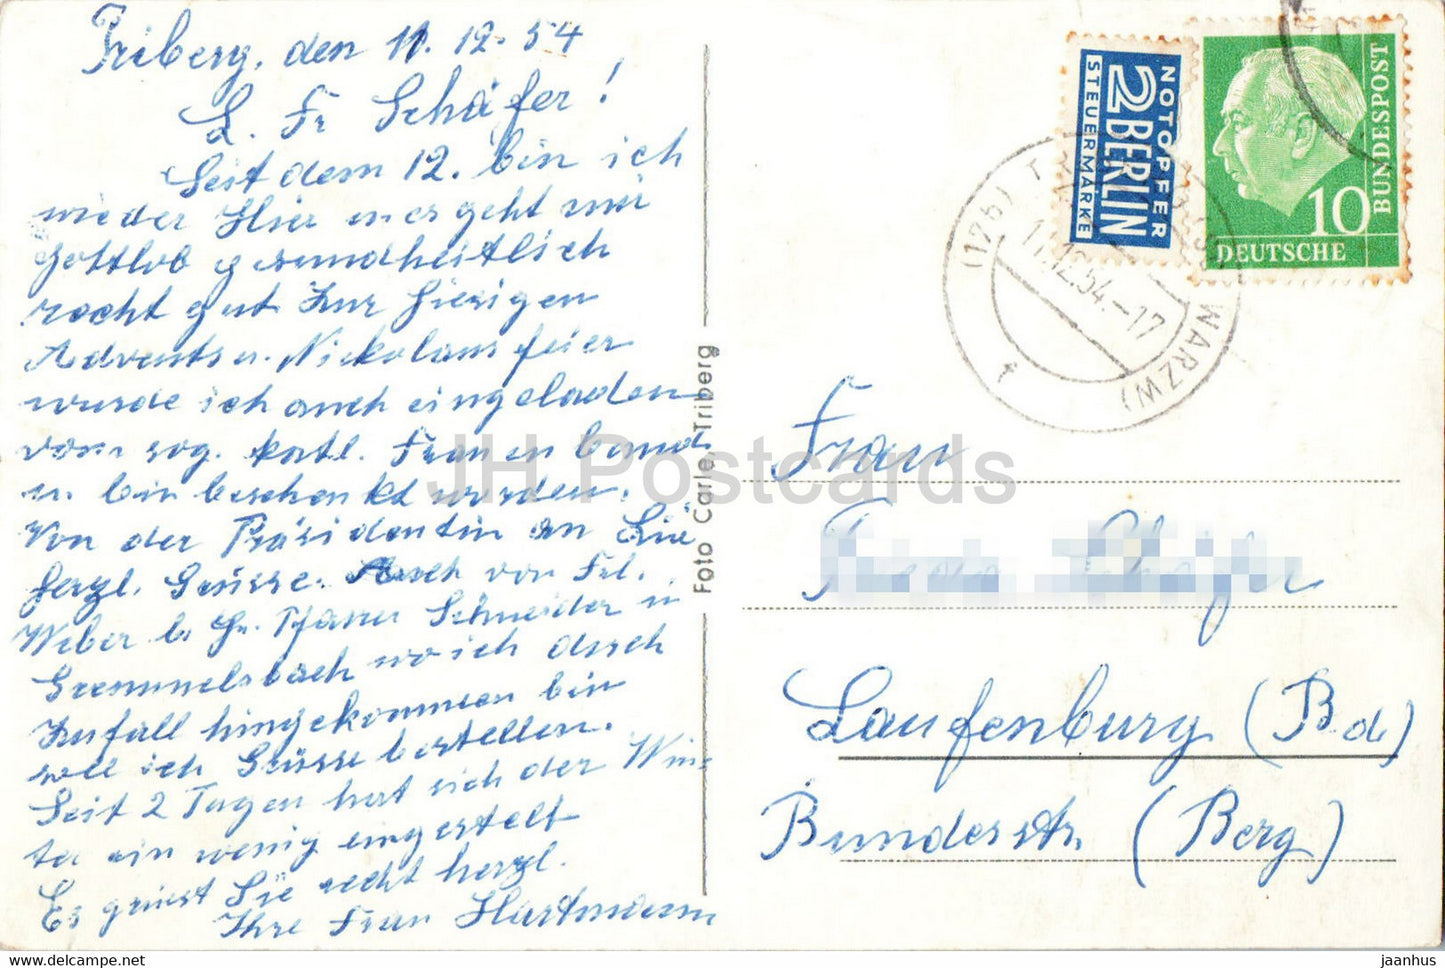 Triberg, den 11.12.54
L. Fr Schäfer!
Seit dem 12. bin ich
wieder Hier u es geht mir
Gottlob gesundheitlich
recht gut Zur hiesigen
Advents u. Nickolausfeier
wurde ich auch eingeladen
vom sog. katl. Frauenbund
u. bin beschenkt worden.
Von der Präsidentin an Sie
herzl. Grüsse. Auch von Frl.
Weber b. Hr. Pfarrer Schneider in
Gremmelsbach wo ich durch
Zufall hingekommen bin
soll ich Grüsse bestellen.
Seit 2 Tagen hat sich der Win-
ter ein wenig eingestellt
Es grüsst Sie recht herzl.
Ihre Frau Hartmann
Foto Carle, Triberg
NOTOPFER
2 BERLIN
STEUERMARKE
DEUTSCHE
BUNDESPOST
10
(17b) T
11.12.54.-17
WARZW)
Frau
Laufenburg (Bd)
Bundesstr. (Berg)
JH Postcards
HIPPOSTCARD.COM
jaanhus